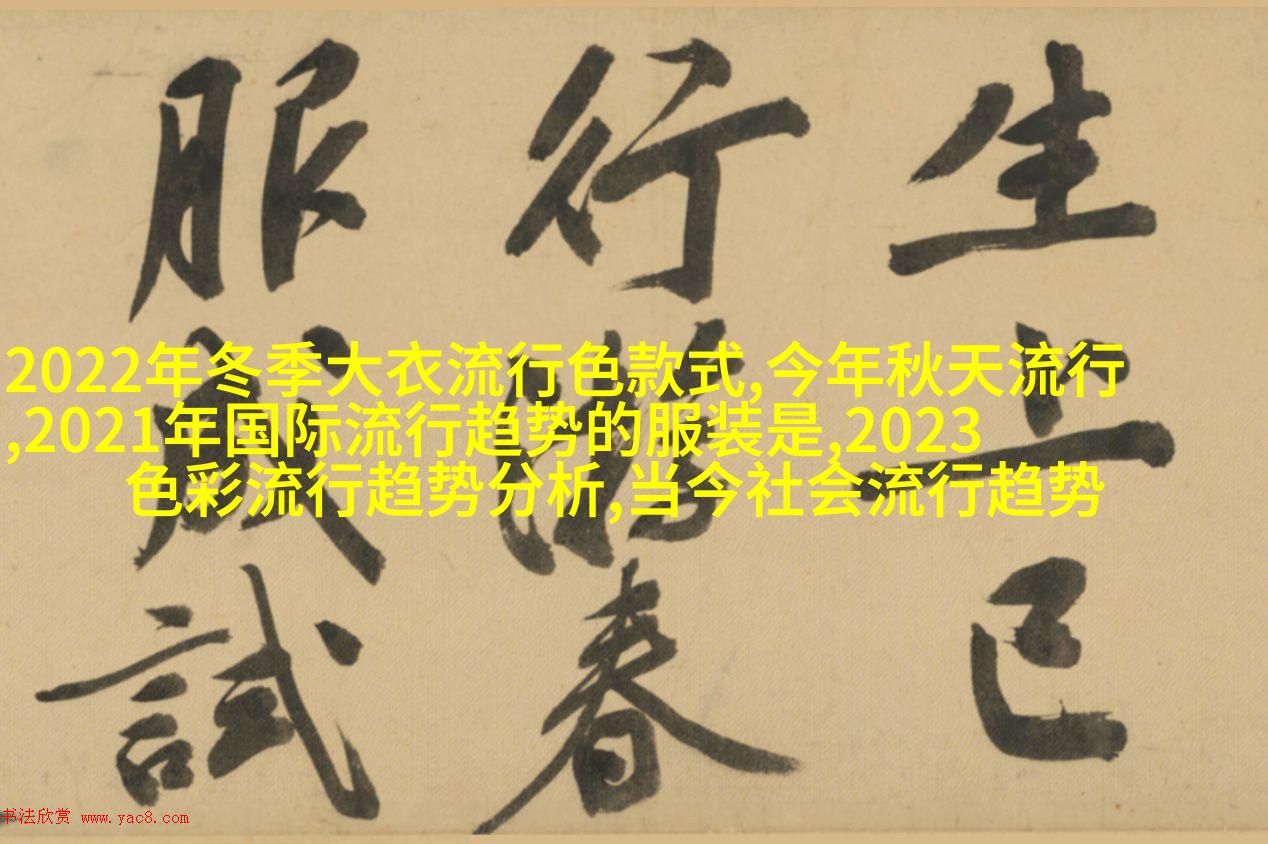 生上巳
行春
服成試
2022年冬季大衣流行色款式,今年秋天流行
,2021年国际流行趋势的服装是,2023
色彩流行趋势分析,当今社会流行趋势
书法欣赏 www.yac8.com